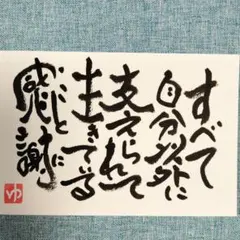 すべて
自分以外に
支えられて
生きている
ことに
感謝
ゆ